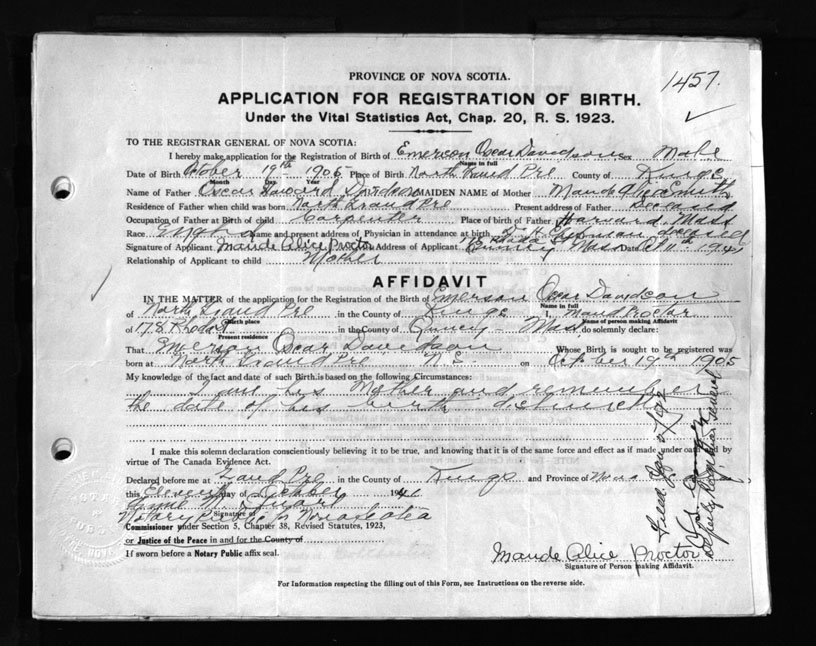 1457.
✓
PROVINCE OF NOVA SCOTIA.
APPLICATION FOR REGISTRATION OF BIRTH.
Under the Vital Statistics Act, Chap. 20, R. S. 1923.
TO THE REGISTRAR GENERAL OF NOVA SCOTIA:
I hereby make application for the Registration of Birth of Emerson Oscar Davidson Sex Male
Name in full
Date of Birth October 19th 1905 Place of Birth North Grand Pre County of Kings
Month Day Year
Name of Father Oscar Davidson MAIDEN NAME of Mother Maude Alice Smith
Residence of Father when child was born North Grand Pre Present address of Father Deceased
Occupation of Father at Birth of child Carpenter Place of birth of Father Harvard, Mass
Race Name and present address of Physician in attendance at birth deceased
Signature of Applicant Maude Alice Proctor Address of Applicant Quincy Mass Date 11th 1941
Relationship of Applicant to child Mother
AFFIDAVIT
IN THE MATTER of the application for the Registration of the Birth of Emerson Oscar Davidson
Name in full
of North Grand Pre in the County of Kings I, Maud Proctor
Birth place Name of person making Affidavit
of 178 Rhoda St in the County of Quincy - Mass do solemnly declare:
Present residence
That Emerson Oscar Davidson Whose Birth is sought to be registered was
born at North Grand Pre N.S. on October 19th 1905
My knowledge of the fact and date of such Birth is based on the following Circumstances:
I am his Mother and remember
the date of his birth distinctly
I make this solemn declaration conscientiously believing it to be true, and knowing that it is of the same force and effect as if made under oath by
virtue of The Canada Evidence Act.
Declared before me at Grand Pre in the County of Kings and Province of
this Eleventh day of 1941
Signature of
Notary Public
Commissioner under Section 5, Chapter 38, Revised Statutes, 1923,
or Justice of the Peace in and for the County of
If sworn before a Notary Public affix seal.
Maude Alice Proctor
Signature of Person making Affidavit.
For Information respecting the filling out of this Form, see Instructions on the reverse side.
Deputy Registrar General